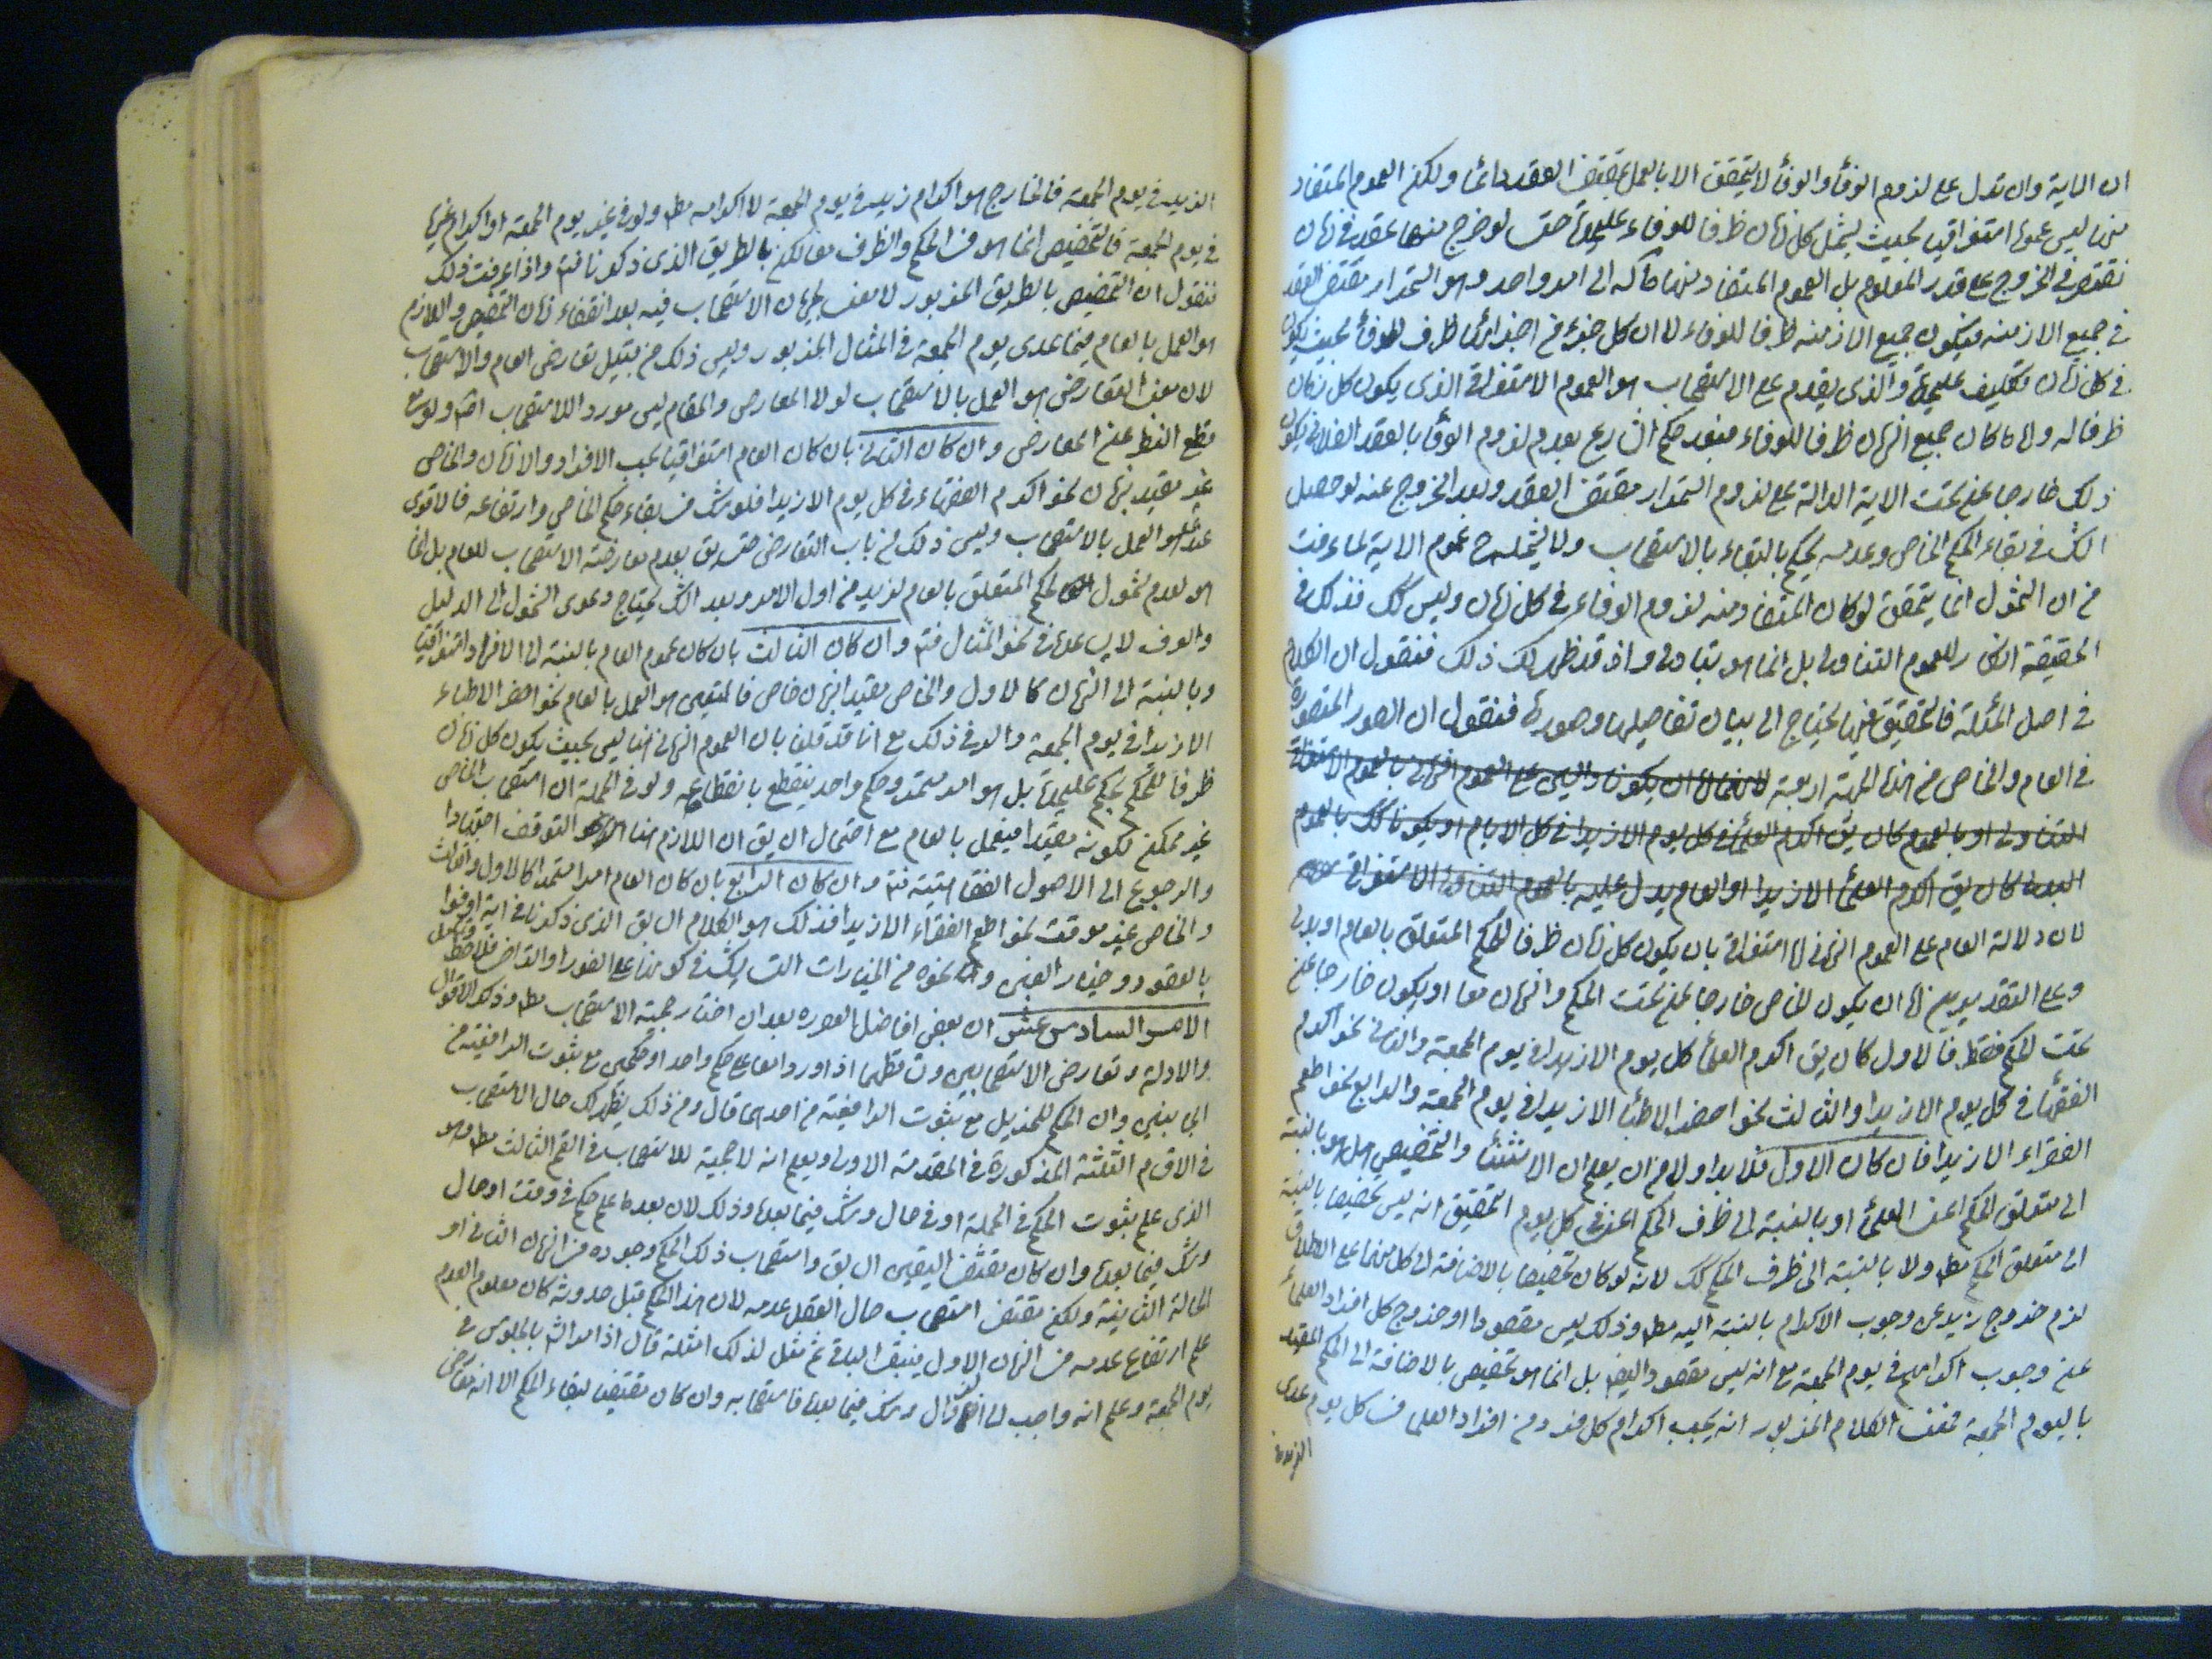 ان الاية وان تدل على لزوم الوفأ والوفأ لا يتحقق الا بالعمل بمقتضى العقد دائما ولكن العموم المستفاد
منها ليس عموما استغراقيا بحيث يشمل كل زمان ظرفا للوفاء عليحدة حتى لو خرج منها عقد في زمان
نقتصر في الخروج على قدر المعلوم بل العموم المستفاد منها مآله الى امر واحد وهو استمرار مقتضى العقد
في جميع الازمنه فيكون جميع الازمنه ظرفا للوفاء لا ان كل جزء من اجزائها ظرف للوفأ بحيث يكون
في كل زمان تكليف عليحدة والذي يقدم على الاستصحاب هو العموم الاستغراقي الذي يكون كل زمان
ظرفا له ولما كان جميع الزمان ظرفا للوفاء فبعد حكم الشارع بعدم لزوم الوفأ بالعقد الفلاني يكون
ذلك خارجا عن تحت الاية الدالة على لزوم استمرار مقتضى العقد وبعد الخروج عنه لو حصل
الشك في بقاء الحكم الخاص وعدمه يحكم بالبقاء بالاستصحاب ولا يشمله ح عموم الاية لما عرفت
من ان الشمول انما يتحقق لو كان المستفاد منه لزوم الوفاء في كل زمان وليس كك فذلك في
الحقيقة انكار للعموم التناولى بل انما هو بتبادلى واذ قد ظهر لك ذلك فنقول ان الكلام
في اصل المسئلة فالتحقيق فيها يحتاج الى بيان تفاصيلها وصورها فنقول ان الصور المتصورة
في العام والخاص من هذه الجهة اربعة لانهما اما ان يكونا دالين على العموم الزمانى بالعموم الاستغراقى
التناولى او بالعموم كان يق اكرم العلمأ في كل يوم الا زيدا في كل الايام او يكونا كك بالعموم
البدلى كان يق اكرم العلمأ الا زيدا او العام يدل عليه بالعموم التناولى الاستغراقى
لان دلالة العام على العموم الزمانى اما استغراقى بان يكون كل زمان ظرفا للحكم المتعلق بالعام او بدلى
وعلى التقديرين اما ان يكون الخاص خارجا عن تحت الحكم والزمان معا او يكون خارجا عن
تحت الحكم فقط فالاول كان يق اكرم العلمأ كل يوم الا زيدا في يوم الجمعة والثانى نحو اكرم
الفقهأ في كل يوم الا زيدا والثالث نحو احضر الاطبأ الا زيدا في يوم الجمعة والرابع نحو اطعم
الفقراء الا زيدا فان كان الاول فلا بد اولا من ان يعلم ان الاستثنأ والتخصيص هل هو بالنسبة
الى متعلق الحكم اعنى العلمأ او بالنسبة الى ظرف الحكم اعنى في كل يوم التحقيق انه ليس تخصيصا بالنسبة
الى متعلق الحكم مط ولا بالنسبة الى ظرف الحكم كك لانه لو كان تخصيصا بالاضافة الى كل منهما على الاطلاق
لزم خروج زيد عن وجوب الاكرام بالنسبة اليه مط وذلك ليس مقصودا او خروج كل افراد العلمأ
عن وجوب اكرامهم في يوم الجمعة مع انه ليس مقصودا ايض بل انما هو تخصيص بالاضافة الى الحكم المقيد
باليوم الجمعة فمعنى الكلام المذبور انه يجب اكرام كل فرد من افراد العلما في كل يوم عدى
الزيد في
الزيد في يوم الجمعة فالخارج هو اكرام زيد في يوم الجمعة لا اكرامه مط ولو في غير يوم الجمعة او اكرام غيره
في يوم الجمعة فالتخصيص انما هو في الحكم والظرف معا لكن بالطريق الذى ذكرنا فتم واذا عرفت ذلك
فنقول ان التخصيص بالطريق المذبور لا معنى لجريان الاستصحاب فيه بعد انقضاء زمان التخصيص واللازم
هو العمل بالعام فيما عدى يوم الجمعة في المثال المذبور وليس ذلك من قبيل تعارض العام والاستصحاب
لان معنى التعارض هو العمل بالاستصحاب لولا المعارض والمقام ليس مورد الاستصحاب اصلا ولو مع
قطع النظر عن المعارض وان كان الثانى بان كان العام استغراقيا بحسب الافراد والازمان والخاص
غير مقيد بزمان نحو اكرم الفقهاء في كل يوم الا زيدا فلو شك في بقاء حكم الخاص وارتفاعه فالاقوى
عندى هو العمل بالاستصحاب وليس ذلك من باب التعارض حتى يق بعدم معارضة الاستصحاب للعام بل انما
هو لعدم شمول الحكم المتعلق بالعام لزيد من اول الامر وبعد الشك يحتاج دعوى الشمول الى الدليل
والعرف لا يساعدنا في نحو المثال فتم وان كان الثالث بان كان عموم العام بالنسبة الى الافراد استغراقيا
وبالنسبة الى الزمان كالاول والخاص مقيدا بزمان خاص فالمتعين هو العمل بالعام نحو احضر الاطباء
الا زيدا في يوم الجمعة والسر في ذلك مع انا قد قلنا بان العموم الزمانى هنا ليس بحيث يكون كل زمان
ظرفا للحكم بحكم عليحدة بل هو امر مستمر وحكم واحد ينقطع بانقطاعه ولو في الجملة ان استصحاب الخاص
غير ممكن لكونه مقيدا فيعمل بالعام مع احتمال ان يق ان اللازم هنا هو التوقف اجتهادا
والرجوع الى الاصول الفقاهتية فتم وان كان الرابع بان كان العام امرا مستمرا كالاول والثالث
والخاص غير موقت نحو اطعم الفقراء الا زيدا فذلك هو الكلام السابق الذى ذكرنا في اية اوفوا
بالعقود وخيار الغبن ونحوه من الخيارات التى يشك في كونها على الفور او التراخى فلاحظ وتامل
الامر السادس عشر ان بعض افاضل العصر بعد ان اختار حجية الاستصحاب مط وذكر الاقوال
والادلة وتعارض الاستصحابين وتساقطهما اذا وردا على حكم واحد او حكمين مع ثبوت الرافعية من
الجانبين وان الحكم للمزيل مع ثبوت الرافعية من احدهما قال ومن ذلك يظهر لك حال الاستصحاب
في الاقسام الثلثة المذكورة في المقدمة الاولى ويعلم انه لا حجية للاستصحاب في القسم الثالث مط وهو
الذى علم بثبوت الحكم في الجملة او في حال وشك فيما بعدها وذلك لان بعد ما علم حكم في وقت او حال
وشك فيما بعدها وان كان مقتضى اليقين السابق واستصحاب ذلك الحكم وجوده في الزمان الثانى او
الحالة الثانية ولكن مقتضى استصحاب حال العقل عدمه لان هذا الحكم قبل حدوثه كان معلوم العدم
علم ارتفاع عدمه في الزمان الاول فيبقى الباقى ثم مثل لذلك امثلة قال اذا امر الشارع بالجلوس في
يوم الجمعة وعلم انه واجب الى الزوال وشك فيما بعدها فاستصحابه وان كان مقتضيا لبقاء الحكم الا انه معارض